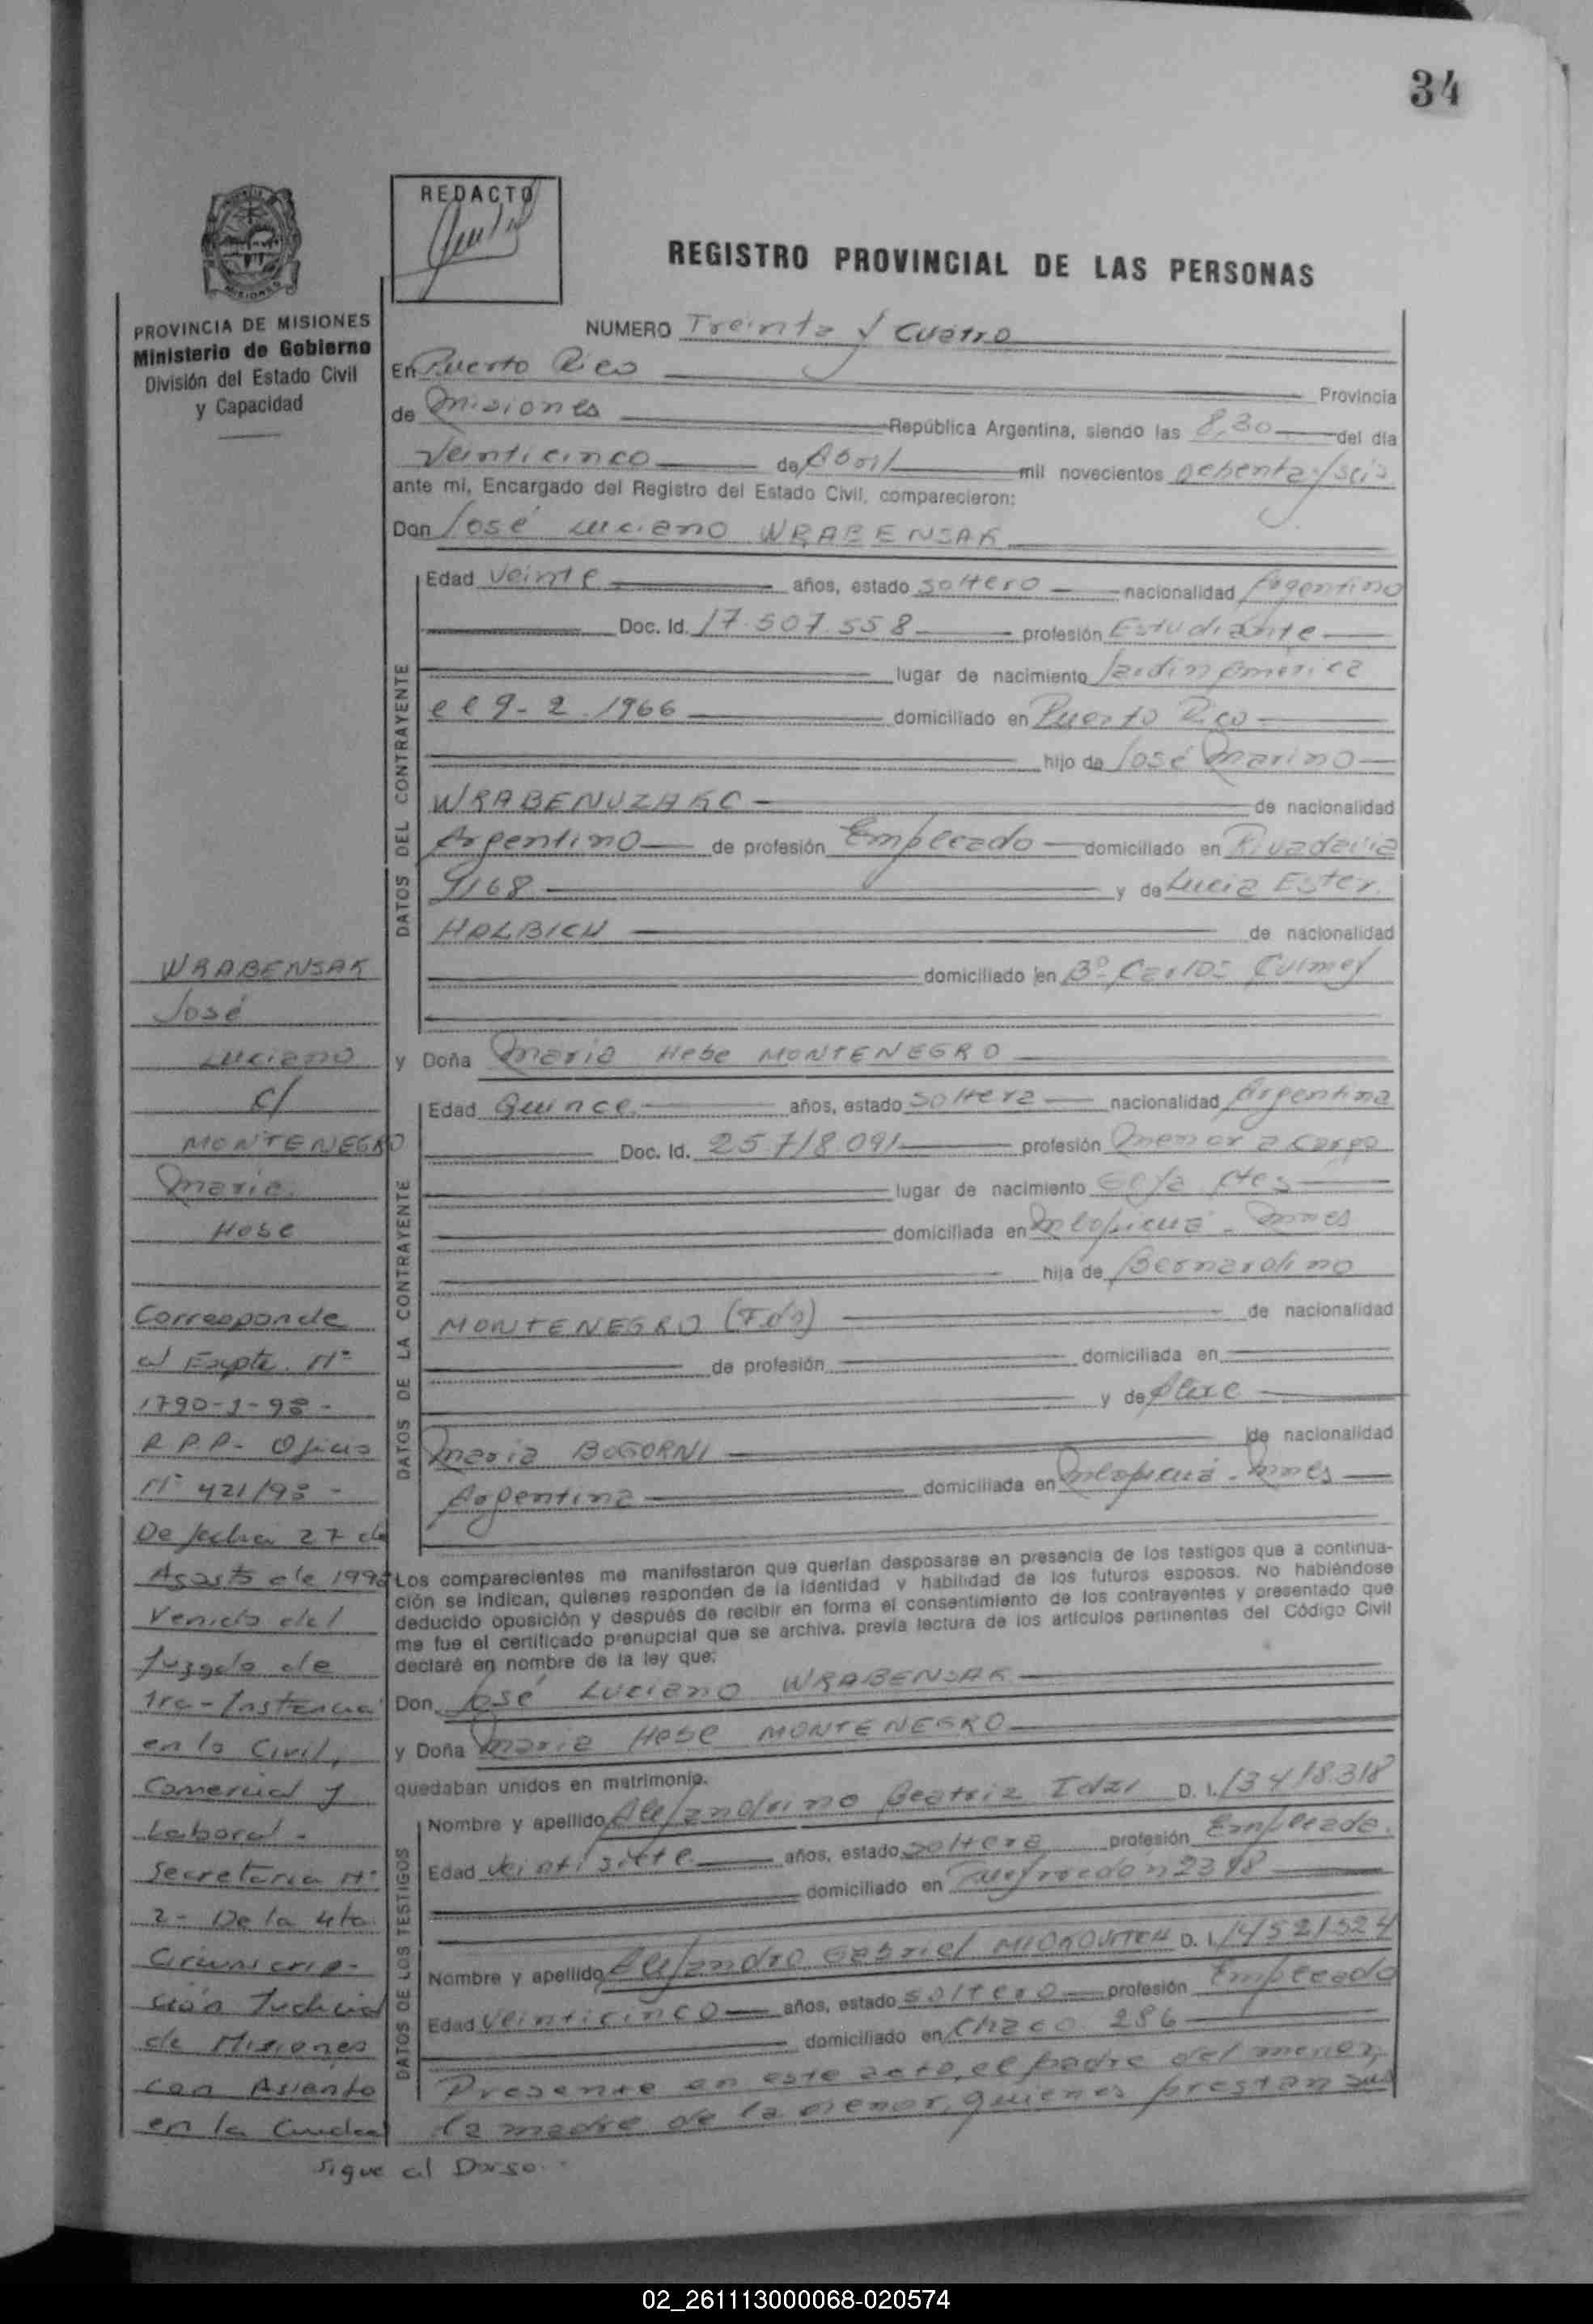 34
REDACTO
REGISTRO PROVINCIAL DE LAS PERSONAS
MISIONES
PROVINCIA DE MISIONES
Ministerio de Gobierno
División del Estado Civil
y Capacidad
NUMERO Treinta y Cuatro
En Puerto Rico Provincia
de Misiones República Argentina, siendo las 8,30 del día
Veinticinco de Abril mil novecientos ochenta y seis
ante mí, Encargado del Registro del Estado Civil, comparecieron:
Don José Luciano WRABENSAK
DATOS DEL CONTRAYENTE
Edad Veinte años, estado soltero nacionalidad Argentino
Doc. Id. 17.507.558 profesión Estudiante
lugar de nacimiento Jardin America
el 9-2-1966 domiciliado en Puerto Rico
hijo de José Marino
WRABENUZAKC de nacionalidad
Argentino de profesión Empleado domiciliado en Rivadavia
y de Lucia Ester
HOLBICH de nacionalidad
domiciliado en Bº Carlos Culmey
y Doña Maria Hebe MONTENEGRO
DATOS DE LA CONTRAYENTE
Edad Quince años, estado soltera nacionalidad Argentina
Doc. Id. 25.718.091 profesión Menor a cargo
lugar de nacimiento Goya Ctes
domiciliada en Ñacanguazú Mnes
hija de Bernardino
MONTENEGRO (Fdo) de nacionalidad
de profesión domiciliada en
y de
Maria BOGORNI de nacionalidad
Argentina domiciliada en Mnes
Los comparecientes me manifestaron que querían desposarse en presencia de los testigos que a continua-
ción se indican, quienes responden de la identidad y habilidad de los futuros esposos. No habiéndose
deducido oposición y después de recibir en forma el consentimiento de los contrayentes y presentado que
me fue el certificado prenupcial que se archiva, previa lectura de los artículos pertinentes del Código Civil
declaré en nombre de la ley que:
Don José Luciano WRABENSAK
y Doña Maria Hebe MONTENEGRO
quedaban unidos en matrimonio.
DATOS DE LOS TESTIGOS
Nombre y apellido Alejandrino Beatriz Idzi D. I. 13418318
Edad Veintisiete años, estado soltera profesión Empleada
domiciliado en
Nombre y apellido Alejandro Gabriel D. I. 14521524
Edad Veinticinco años, estado soltero profesión Empleado
domiciliado en Chaco 286
Presente en este acto, el padre del menor,
la madre de la menor, quienes prestan su
WRABENSAK
José
Luciano
c/
MONTENEGRO
Maria
Hebe
Corresponde
al Expte. Nº
1790-J-98-
R.P.P- Oficio
Nº 421/98 -
De fecha 27 de
Agosto de 1998
Venido del
Juzgado de
1ra-Instancia
en lo Civil,
Comercial y
Laboral -
Secretaria Nº
2- De la 4ta
Circunscrip-
ción Judicial
de Misiones
con Asiento
en la Ciudad
Sigue al Dorso..
02_261113000068-020574